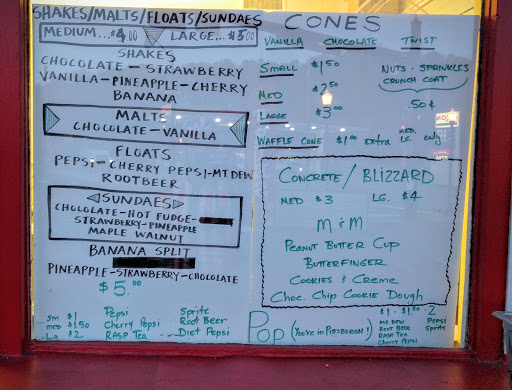 SHAKES/MALTS/FLOATS/SUNDAES
MEDIUM...$4.00 LARGE...$5.00
SHAKES
CHOCOLATE-STRAWBERRY
VANILLA-PINEAPPLE-CHERRY
BANANA
MALTS
CHOCOLATE-VANILLA
FLOATS
PEPSI-CHERRY PEPSI-MT DEW
ROOTBEER
SUNDAES
CHOCOLATE-HOT FUDGE-
STRAWBERRY-PINEAPPLE
MAPLE WALNUT
BANANA SPLIT
PINEAPPLE-STRAWBERRY-CHOCOLATE
$5.00
Sm $1 Pepsi Sprite
med $1.50 Cherry Pepsi Root Beer
Lg $2 RASP Tea Diet Pepsi
CONES
VANILLA CHOCOLATE TWIST
SMALL $1.50
MED $2.50
LARGE $3.00
NUTS - SPRINKLES
CRUNCH COAT
.50¢
WAFFLE CONE $1.00 Extra MED. LG. only
CONCRETE/BLIZZARD
MED $3 LG. $4
M & M
PEANUT BUTTER CUP
BUTTERFINGER
COOKIES & CREME
CHOC. CHIP COOKIE DOUGH
POP (YOU'RE IN PITTSBURGH!)
$1 - $1.50 - 2
MT DEW PEPSI
ROOT BEER Sprite
RASP TEA
CHERRY PEPSI